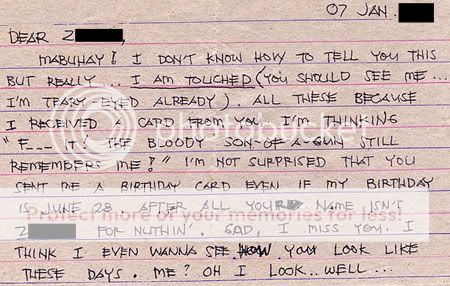 07 JAN.
DEAR Z,
MABUHAY! I DON'T KNOW HOW TO TELL YOU THIS
BUT REALLY... I AM TOUCHED (YOU SHOULD SEE ME...
I'M TEARY-EYED ALREADY). ALL THESE BECAUSE
I RECEIVED A CARD FROM YOU. I'M THINKING
"F--- IT! THE BLOODY SON-OF-A-GUN STILL
REMEMBERS ME!" I'M NOT SURPRISED THAT YOU
SENT ME A BIRTHDAY CARD EVEN IF MY BIRTHDAY
IS JUNE 28 AFTER ALL YOUR NAME ISN'T
Z FOR NUTHIN'. GAD, I MISS YOU. I
THINK I EVEN WANNA SEE HOW YOU LOOK LIKE
THESE DAYS. ME? OH I LOOK..WELL...
photobucket
Protect more of your memories for less!